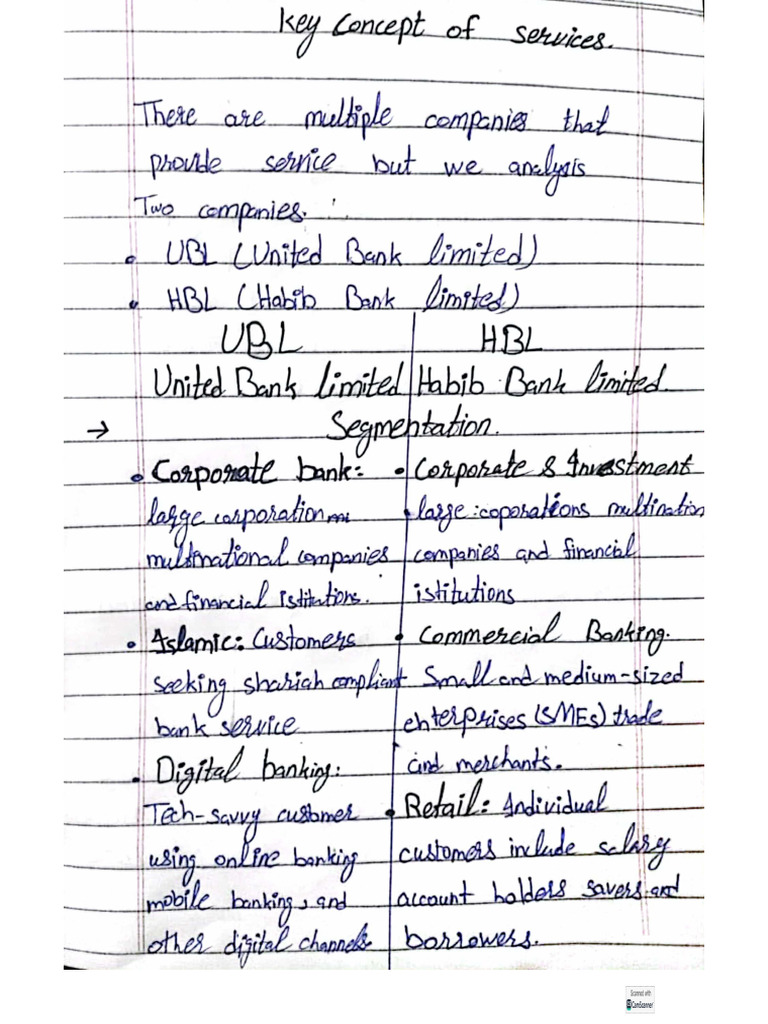 Key Concept of services.
There are multiple companies that
provide service but we analysis
Two companies.
• UBL (United Bank limited)
• HBL (Habib Bank limited)
UBL
United Bank limited
HBL
Habib Bank limited
→ Segmentation.
• Corporate bank:
large corporation
multinational companies
and financial istitutions.
• Islamic: Customers
seeking shariah compliant
bank service
• Digital banking:
Tech-savvy customer
using online banking
mobile banking, and
other digital channels.
• Corporate & Investment
• large :coporations multination
companies and financial
istitutions
• Commercial Banking.
Small and medium-sized
enterprises (SMEs) trade
and merchants.
• Retail: Individual
customers include salary
account holders savers and
borrowers.
Scanned with
CamScanner